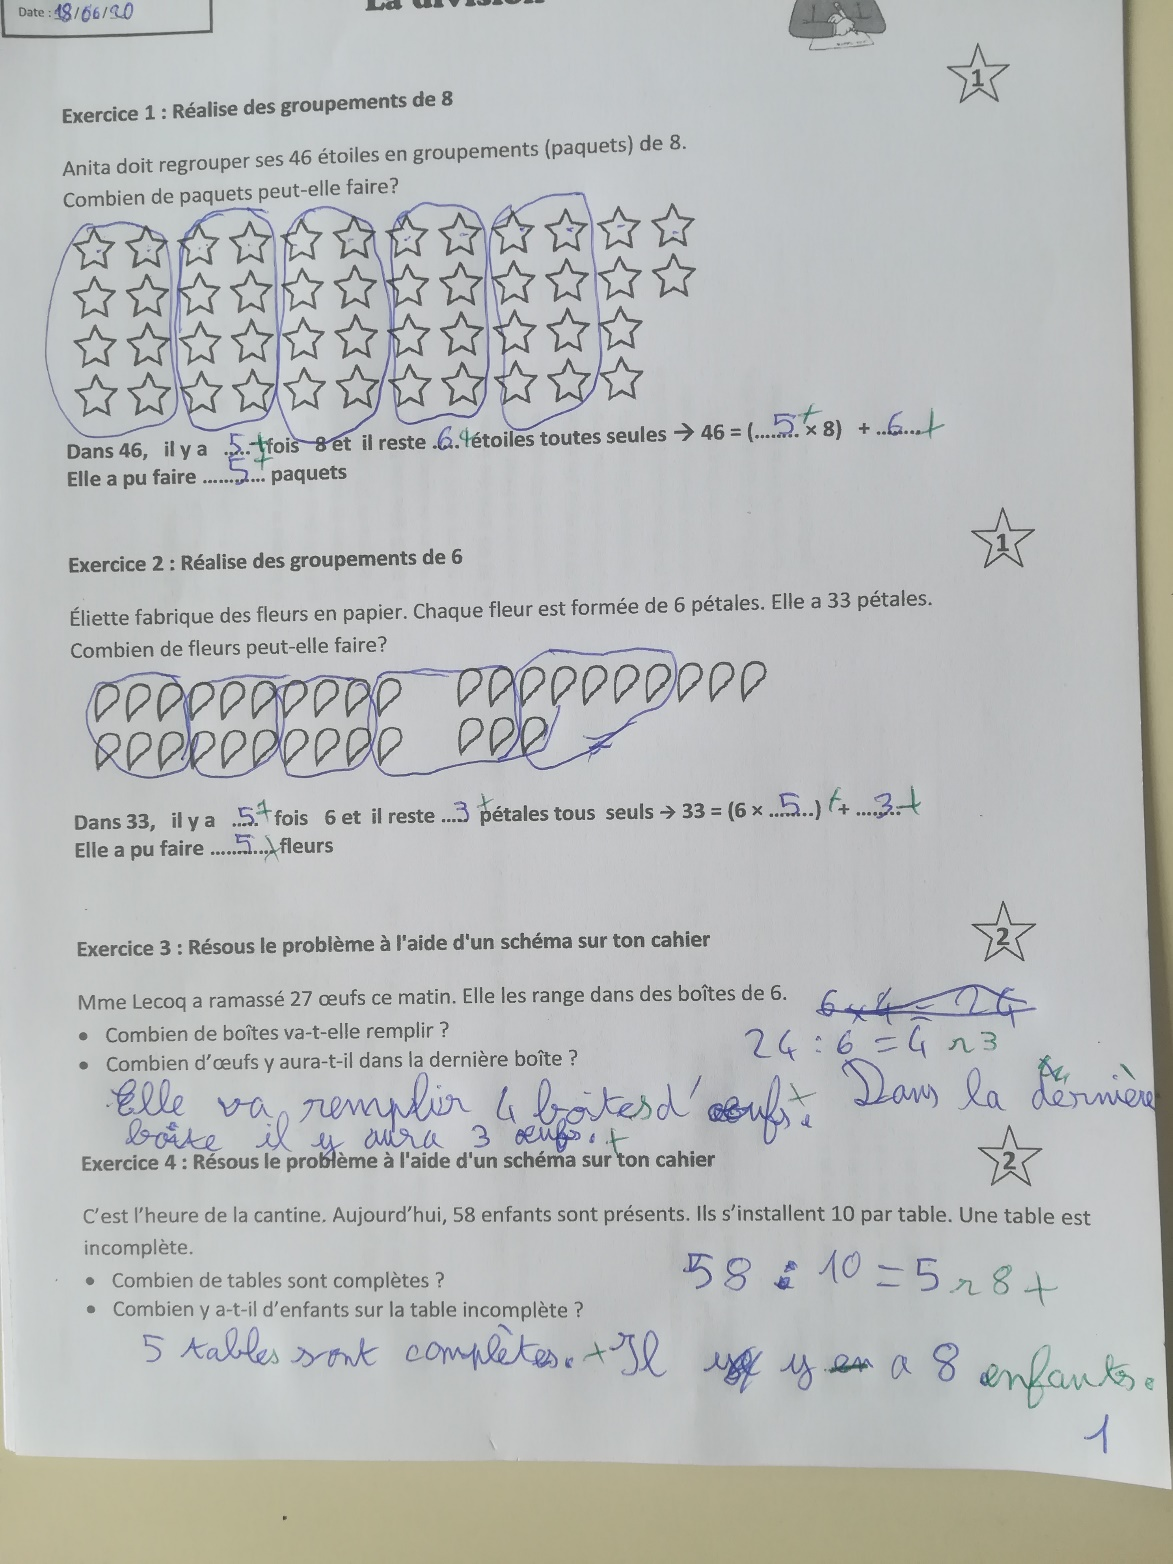 Date : 18/06/20
La division
1
Exercice 1 : Réalise des groupements de 8
Anita doit regrouper ses 46 étoiles en groupements (paquets) de 8.
Combien de paquets peut-elle faire?
Dans 46, il y a ..5.. + fois 8 et il reste ..6.. + étoiles toutes seules → 46 = (....5.... + × 8) + ..6.... +
Elle a pu faire ......5...... + paquets
1
Exercice 2 : Réalise des groupements de 6
Éliette fabrique des fleurs en papier. Chaque fleur est formée de 6 pétales. Elle a 33 pétales.
Combien de fleurs peut-elle faire?
Dans 33, il y a ..5.. + fois 6 et il reste ....3 + pétales tous seuls → 33 = (6 × ...5....) + + ....3.... +
Elle a pu faire ......5...... + fleurs
2
Exercice 3 : Résous le problème à l'aide d'un schéma sur ton cahier
Mme Lecoq a ramassé 27 œufs ce matin. Elle les range dans des boîtes de 6.
6 x 4 = 24
• Combien de boîtes va-t-elle remplir ?
24 : 6 = 4 r 3
• Combien d'œufs y aura-t-il dans la dernière boîte ?
Elle va remplir 4 boîtes d'œufs. + Dans la dernière
boîte il y aura 3 œufs. +
Exercice 4 : Résous le problème à l'aide d'un schéma sur ton cahier
2
C'est l'heure de la cantine. Aujourd'hui, 58 enfants sont présents. Ils s'installent 10 par table. Une table est
incomplète.
58 : 10 = 5 r 8 +
• Combien de tables sont complètes ?
• Combien y a-t-il d'enfants sur la table incomplète ?
5 tables sont complètes. + Il y a 8 enfants.
1